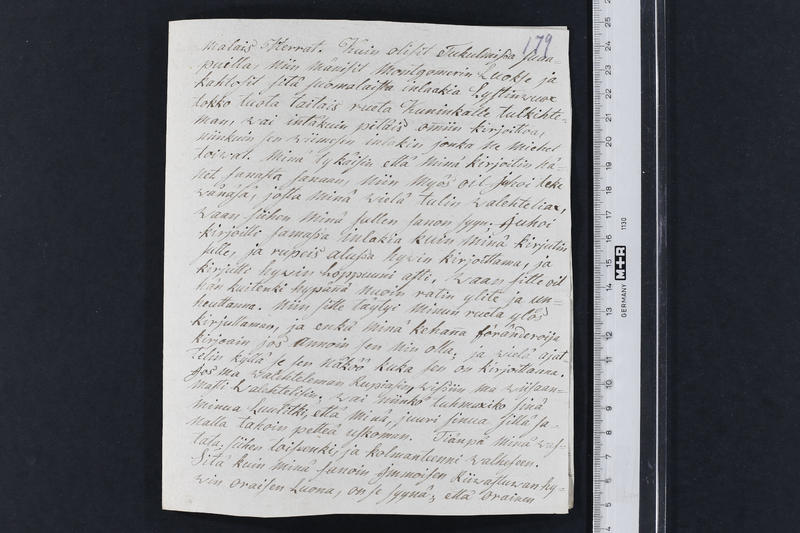 179
malais Herrat. Kuin olisit Tukulmissa
puilla, niin mänisit Montgomerin Luokse ja
kahtosit sitä suomalaista inlaakia
tokko tuota taitais ruota Kuninkalle tulkihte-
man, vai intäkuin pitäis omiin kirjoittoa,
niinkuin sen viimesen inlakin jonka ne Miehet
toivat. Minä lykäisin että Minä kirjoitin hä-
net sanasta sanaan, niin Myös oil
jotta minä vielä tulin valehteliax,
vaan siihen minä sullen sanon syyn. Juhoi
kirjoitti samassa inlakia kuin minä kirjutin
sulle, ja rupeis alussa hyvin kirjottama, ja
kirjutti hyvin Loppuuni asti, Vaan sitte oil
hän kuitenki hypänä nuoin ratin ylite ja un-
heuttanna. Niin sitte täytyi minun ruota ylös
kirjuttaman, ja enkä minä kehana föränderoija
kirjoain jos annoin sen niin olla, ja vielä ajat-
telin kyllä se sen näköö kuka sen on kirjottanna.
Jos ma valehteleman rupiaisin, visiin ma viisaan-
masti Valehtelisin, vai niinkö tuhmaxiko sinä
minua Luulitki, että Minä, juuri sinua sillä la-
malla tahoin petteä uskomun. Tiänpä minä vas-
tata, siihen toisenki, ja kolmantenni valheseen.
Sitä kuin minä sanoin Immoisen Kiivastuvan hy-
vin Oraisen Luona, on se syynä, että Orainen
GERMANY M+R 1130